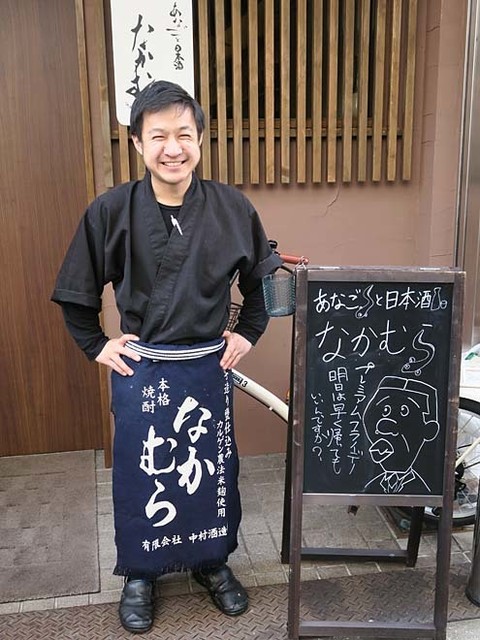 あなごと日本酒
なかむら
本格
焼酎
なかむら
手造り甕仕込み
カルゲン農法米麹使用
有限会社 中村酒造
あなごと日本酒
なかむら
プレミアムフライデー
明日は早く帰っても
いいんですか?